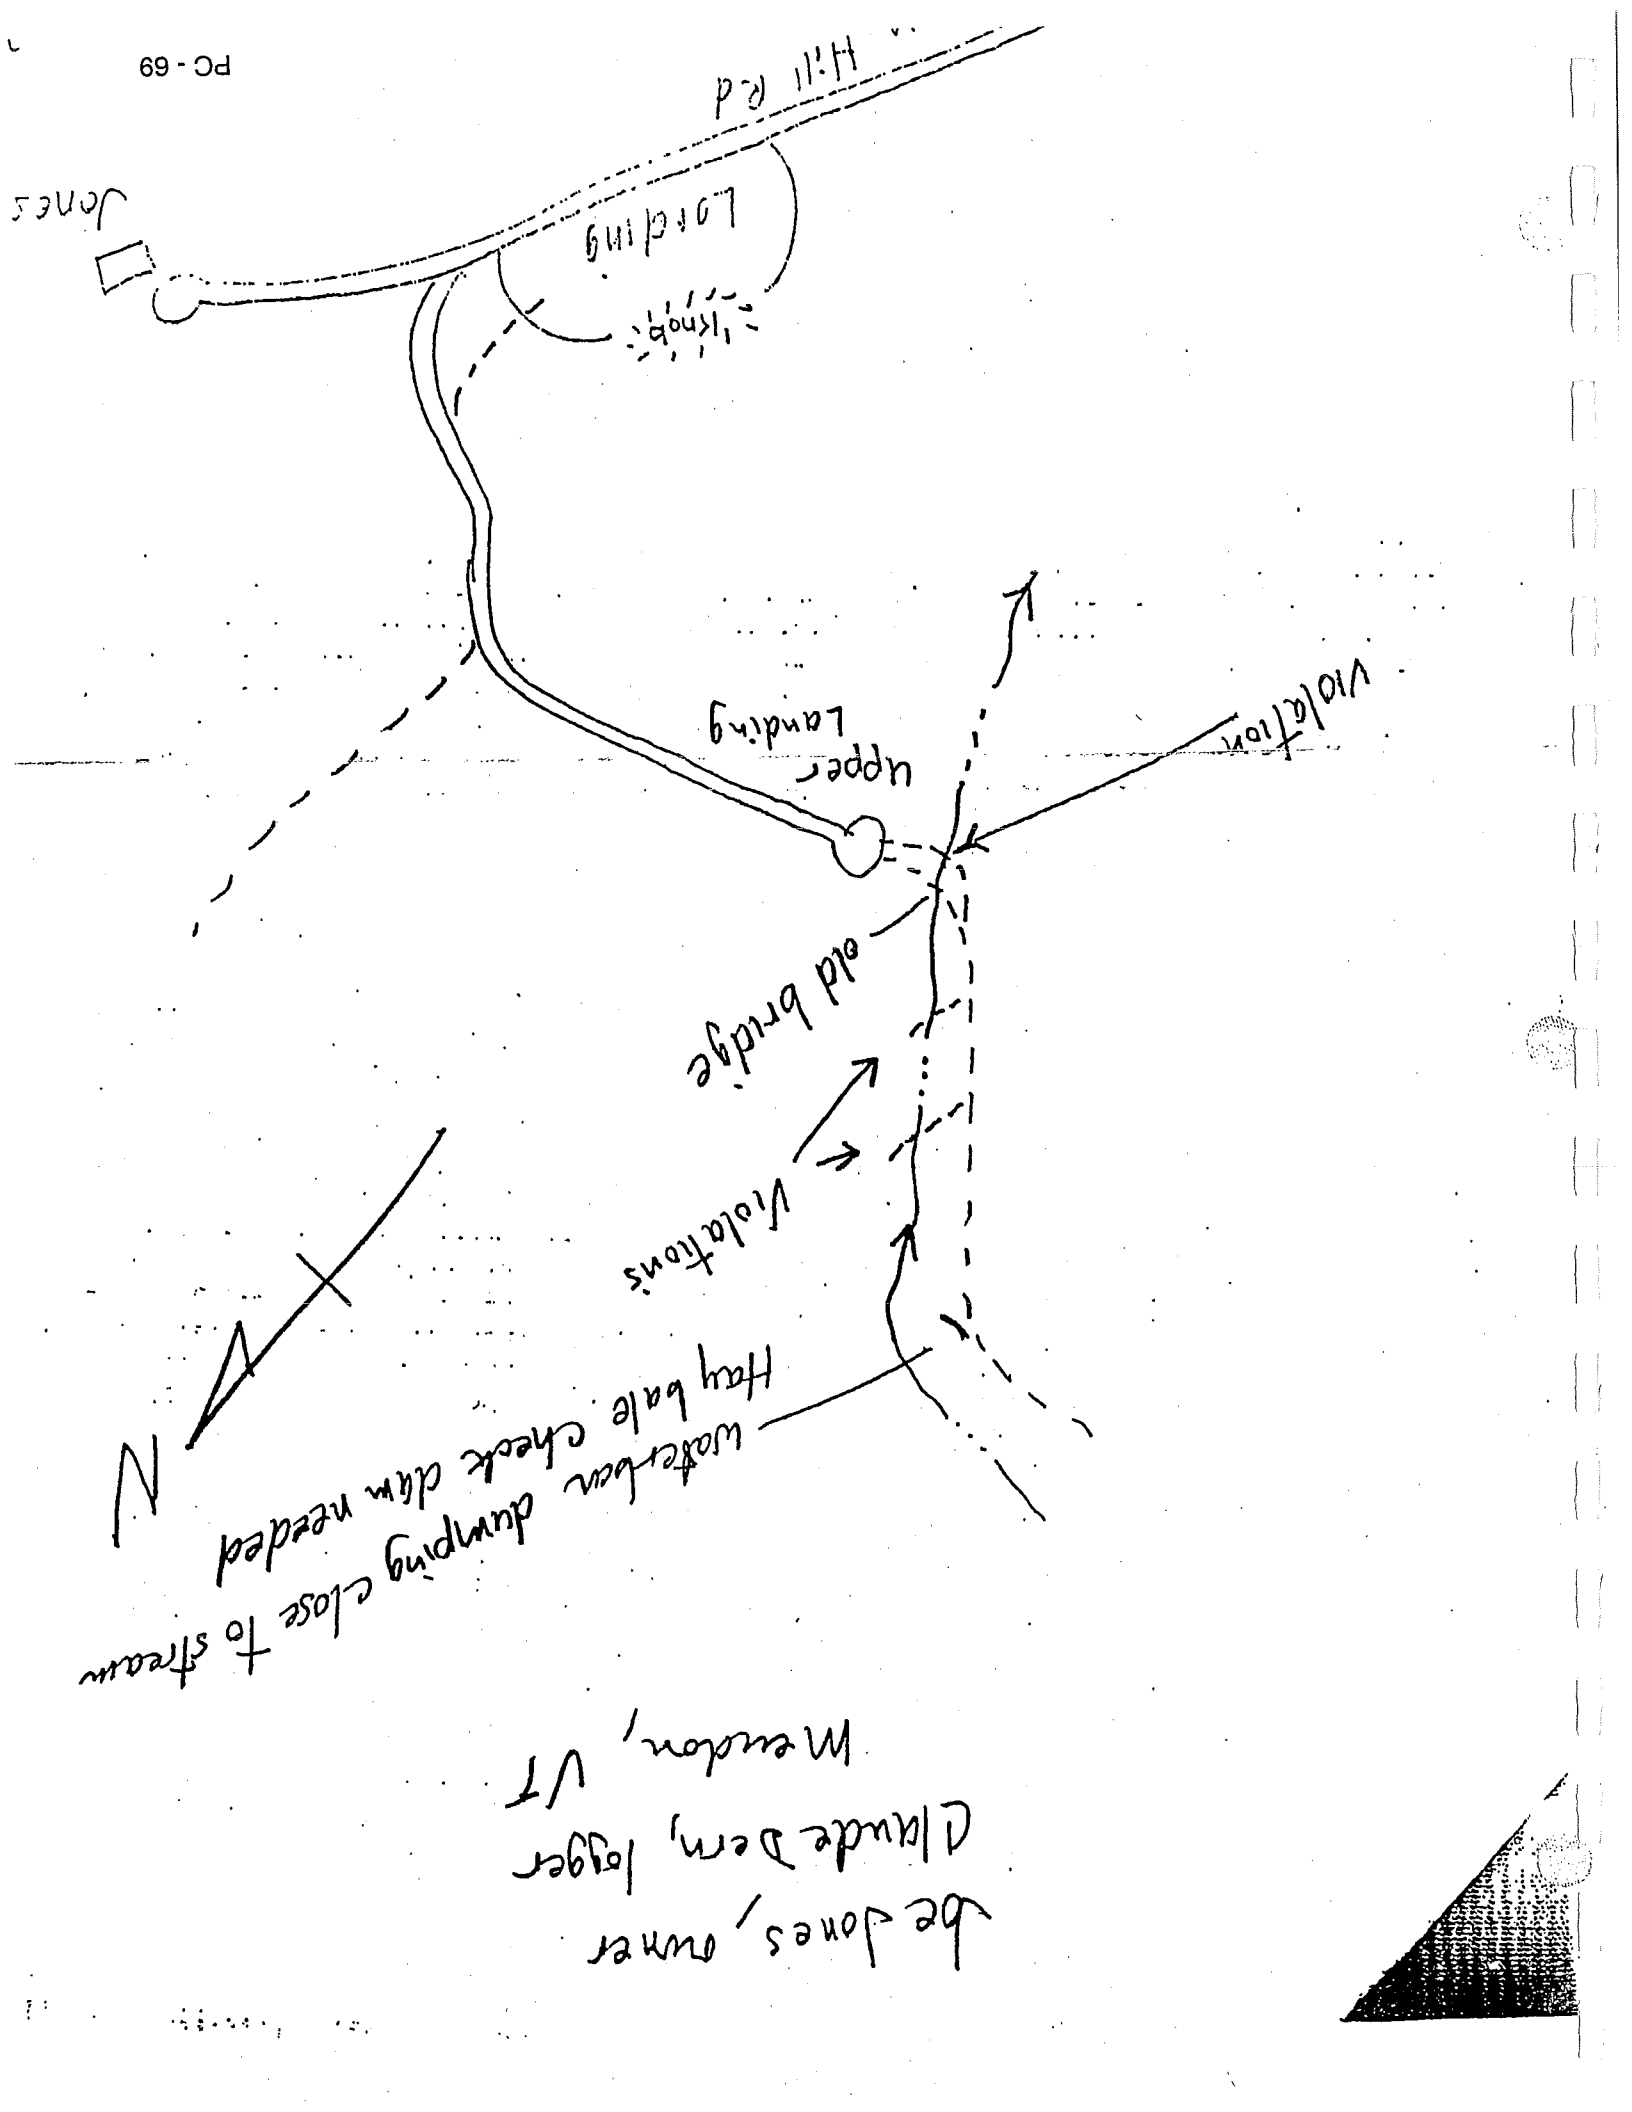 Joe Jones, owner
Claude Dern, logger
Mendon, VT
waterbar dumping close to stream
Hay bale check dam needed
N
Violations
old bridge
Violation
Upper
Landing
Knob
Landing
Jones
Hill Rd
PC - 69